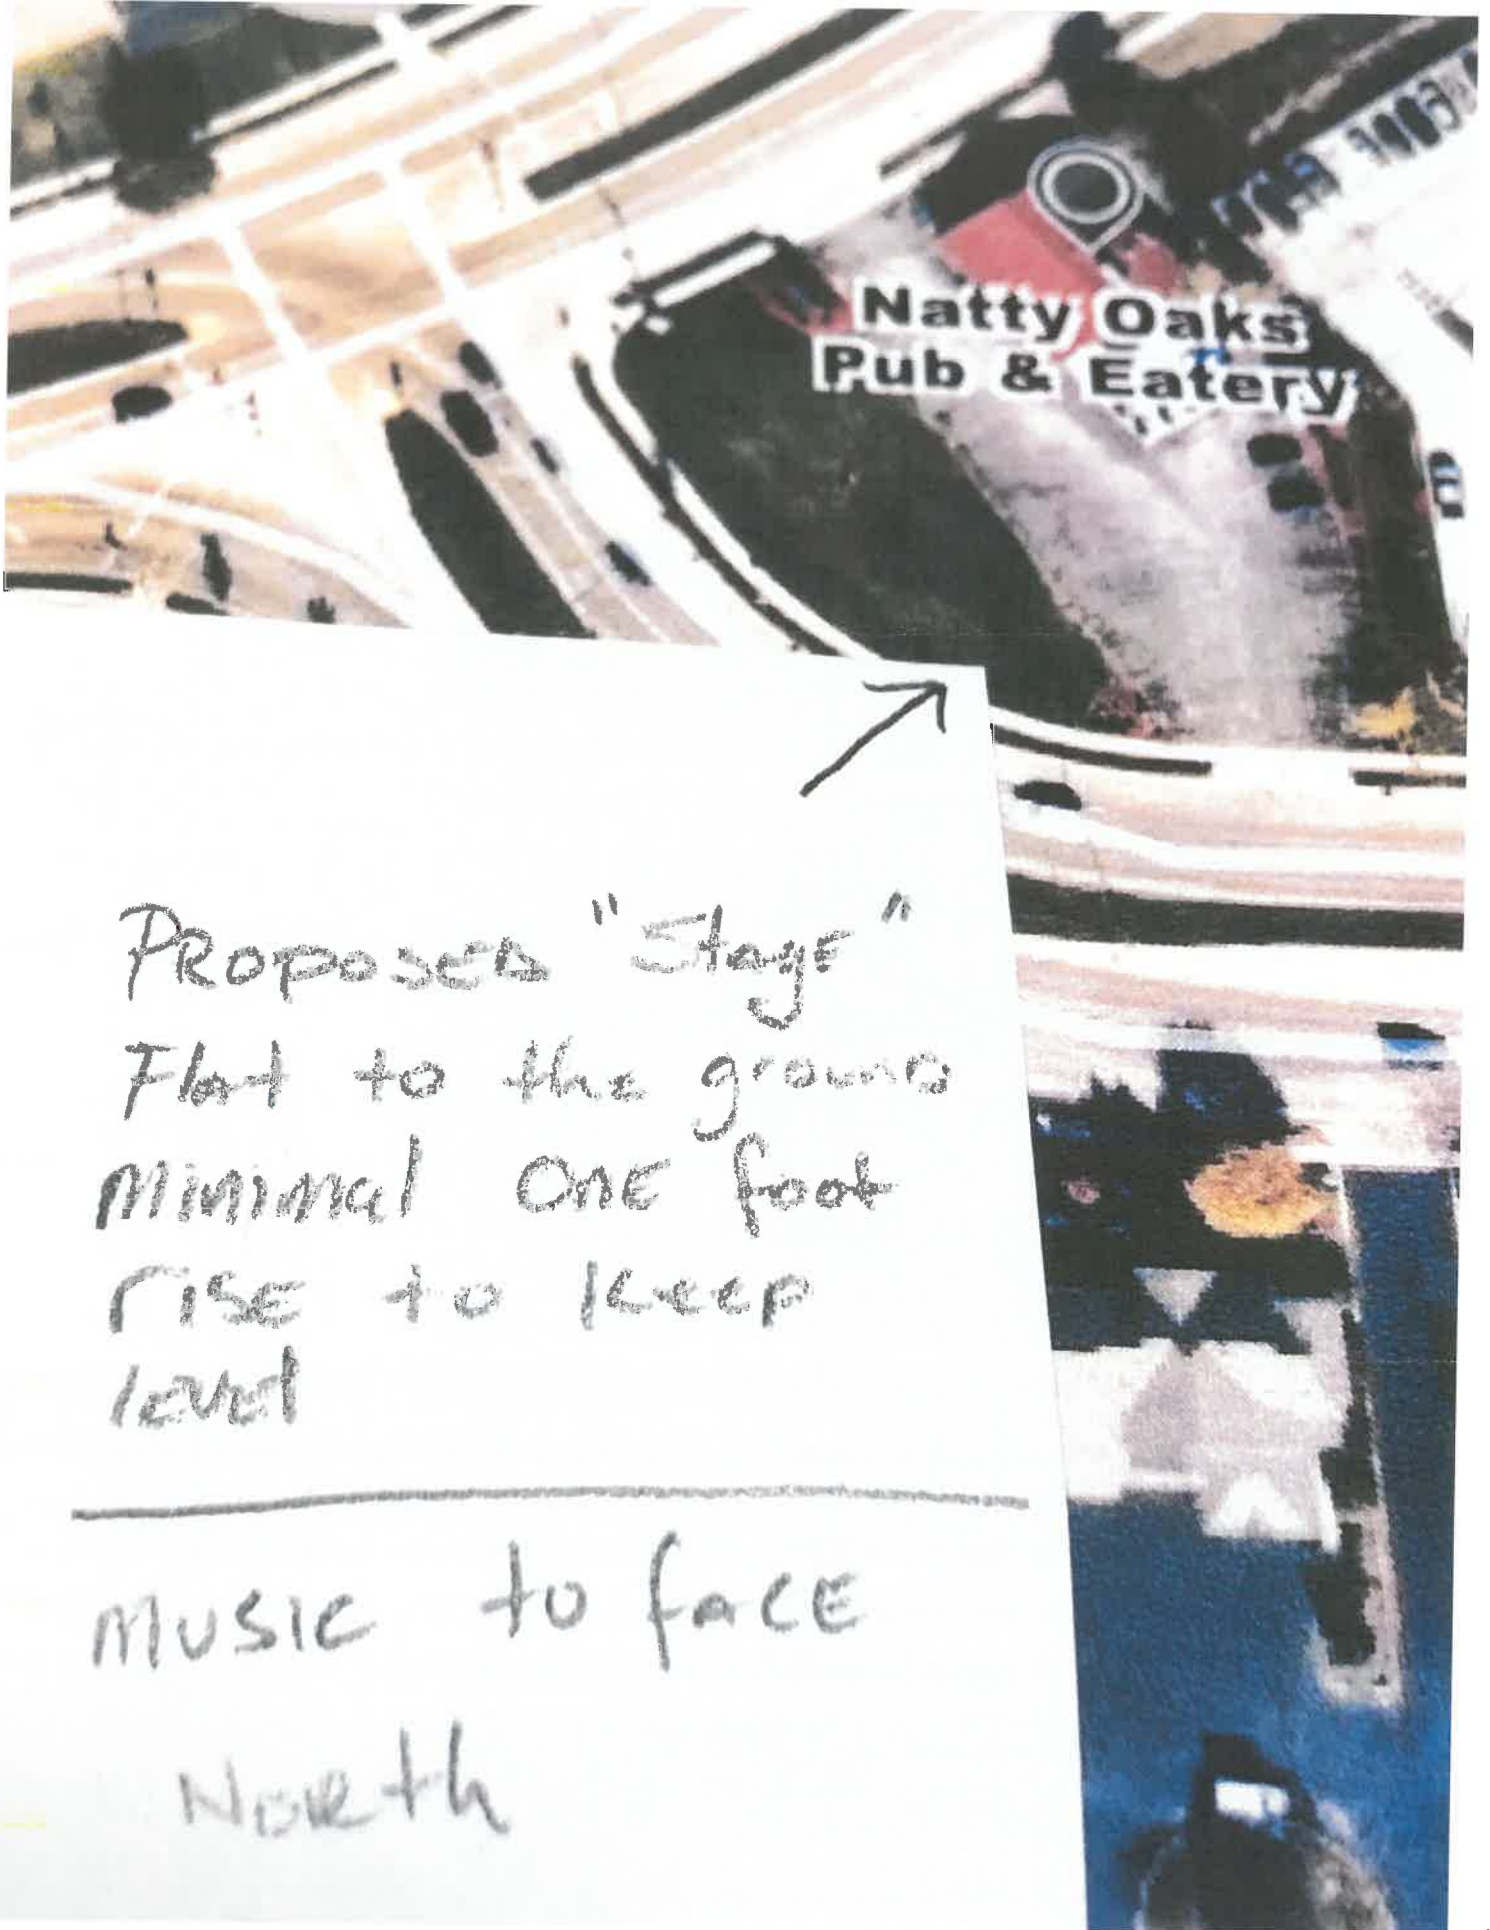 Natty Oaks
Pub & Eatery
Proposed "Stage"
Flat to the ground
Minimal one foot
rise to keep
level
Music to face
North